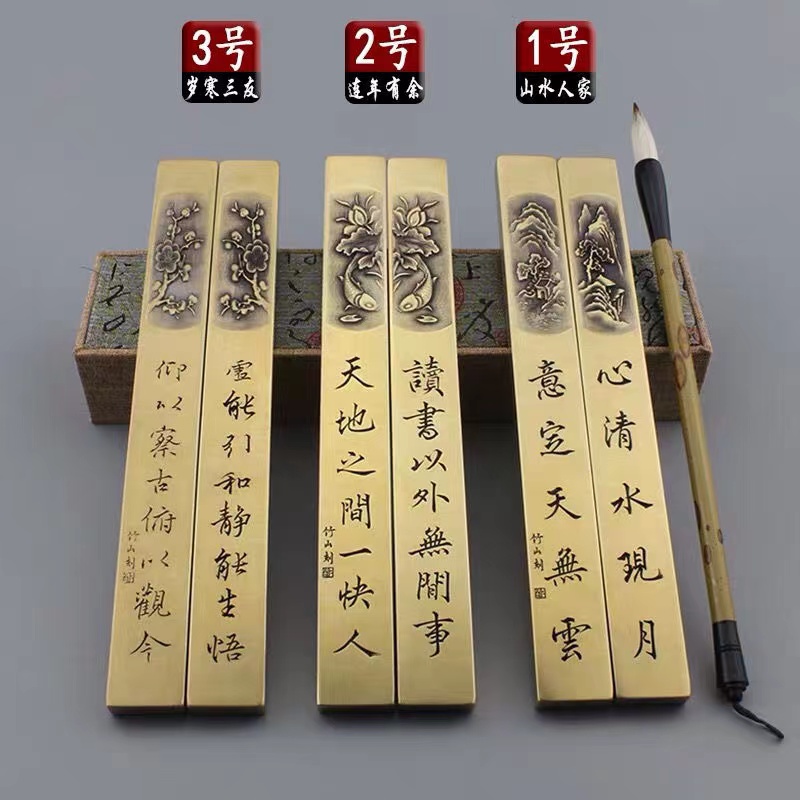 3号
岁寒三友
2号
连年有余
1号
山水人家
虚能引和静能生悟
仰以察古俯以觀今
竹山刻
讀書以外無閒事
天地之間一快人
竹山刻
心清水現月
意定天無雲
竹山刻